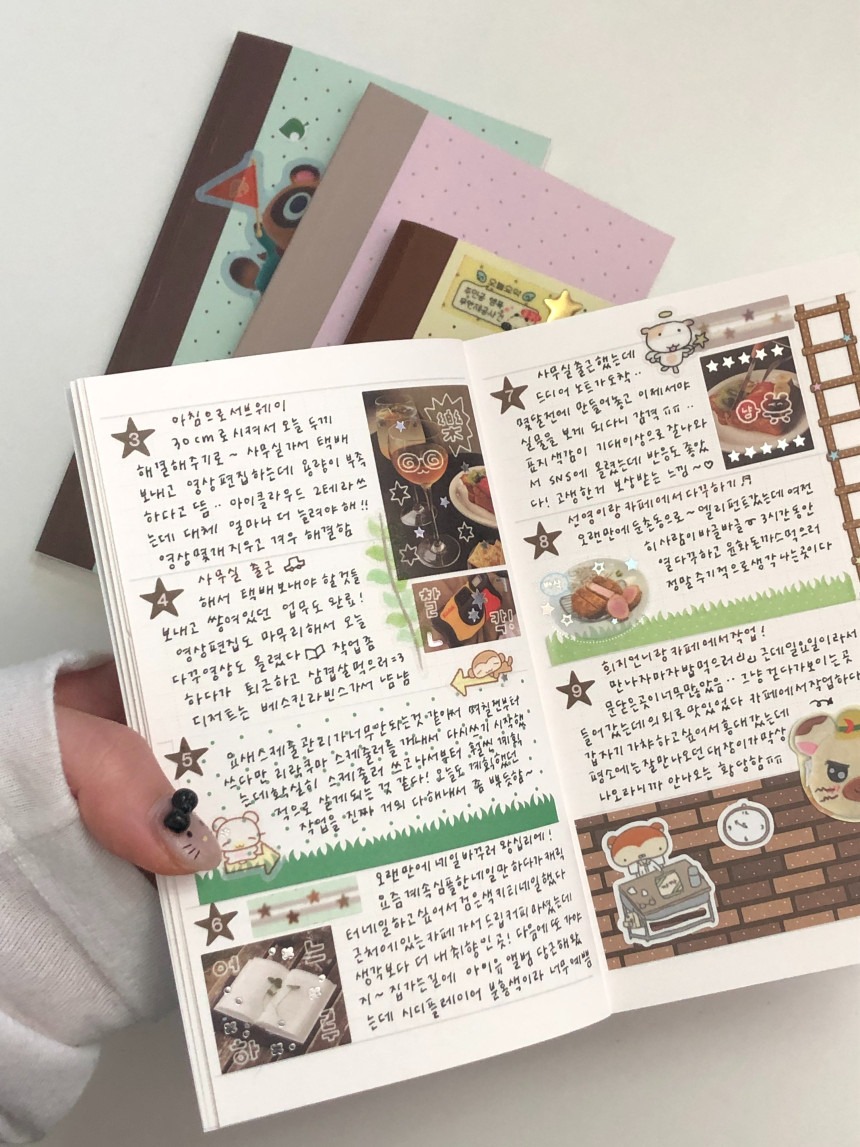 3
아침으로 서브웨이
30cm로 시켜서 오늘 두끼
해결해주기로~ 사무실가서 택배
보내고 영상편집하는데 용량이 부족
하다고 뜸.. 아이클라우드 2테라쓰
는데 대체 얼마나 더 늘려야해!!
영상몇개 지우고 겨우 해결함
樂
찰
칵!
4
사무실 출근
해서 택배보내야 할것들
보내고 쌓여있던 업무도 완료!
영상편집도 마무리해서 오늘
다꾸영상도 올렸다 작업좀
하다가 퇴근하고 삼겹살먹으러=3
디저트는 베스킨라빈스가서 냠냠
5
요새스케줄관리가너무안되는것같아서 며칠전부터
쓰다만 리락쿠마 스케줄러를 꺼내서 다시쓰기 시작했
는데확실히 스케줄러 쓰고나서부터 훨씬 계획
적으로 살게되는것 같다! 오늘도 계획했던
작업을 진짜 거의 다해내서 좀 뿌듯함~
6
오랜만에 네일바꾸러 왕십리에!
요즘계속심플한네일만하다가캐릭
터네일하고싶어서검은색키티네일했다
근처에있는카페가서드립커피마셨는데
생각보다 더 내취향인곳! 다음에또가야
지~ 집가는길에 아이유앨범 당근해왔
는데 시디플레이어 분홍색이라 너무예쁨
7
사무실출근했는데
드디어 노트가도착..
몇달전에 만들어놓고 이제서야
실물을 보게 되다니 감격 ㅠㅠ..
표지색감이 기대이상으로 잘나와
서 SNS에 올렸는데 반응도 좋았
다! 고생한거 보상받는 느낌~♡
냠
8
선영이랑 카페에서다꾸하기♬
오랜만에 둔촌동으로~ 엘리펀트갔는데여전
히사람이바글바글 3시간동안
열다꾸하고 윤화돈까스먹으러
정말주기적으로생각나는곳이다
9
희지언니랑카페에서작업!
만나자마자밥먹으러 근데일요일이라서
문닫은곳이너무많았음.. 그냥걷다가보이는곳
들어갔는데의외로맛있었다 카페에서작업하다
갑자기가챠하고싶어서홍대갔는데
평소에는잘만나오던대장이가막상
나오라니까 안나오는 황당함ㅠㅠ